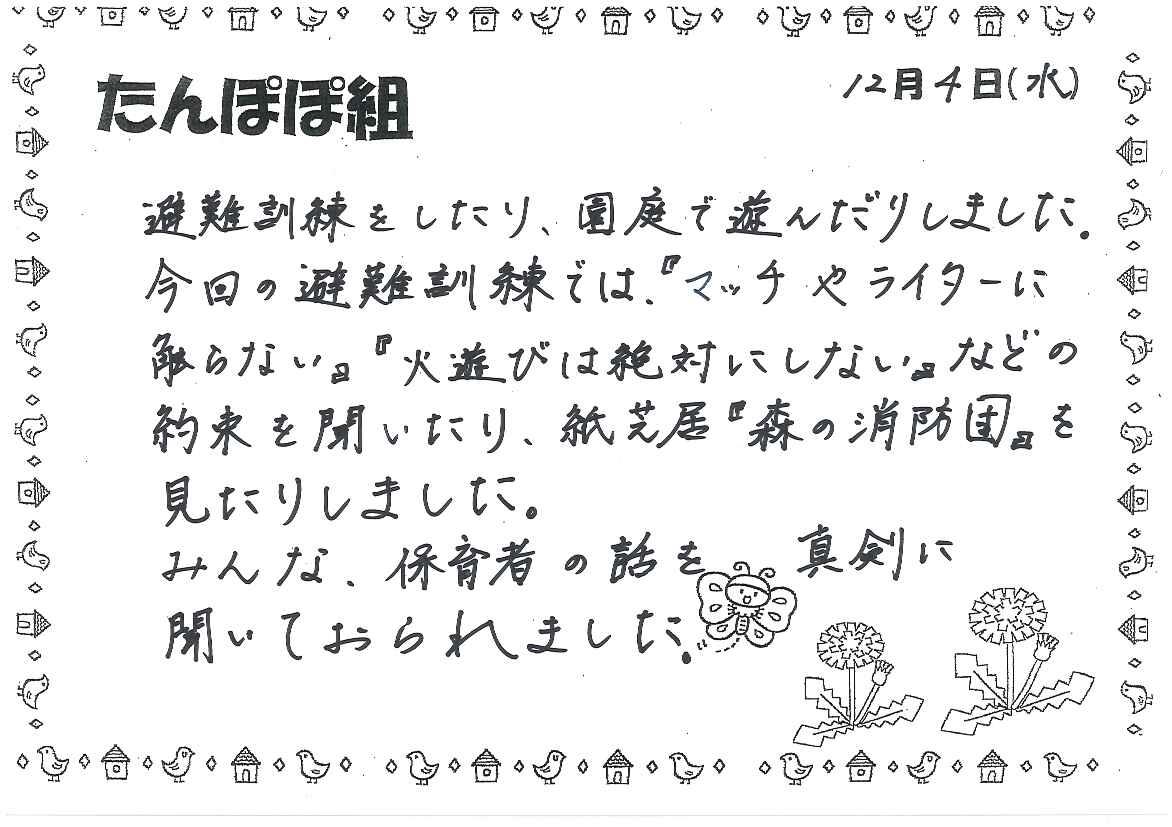 たんぽぽ組
12月4日(水)
避難訓練をしたり、園庭で遊んだりしました。
今回の避難訓練では、『マッチやライターに
触らない』『火遊びは絶対にしない』などの
約束を聞いたり、紙芝居『森の消防団』を
見たりしました。
みんな、保育者の話を 真剣に
聞いておられました。